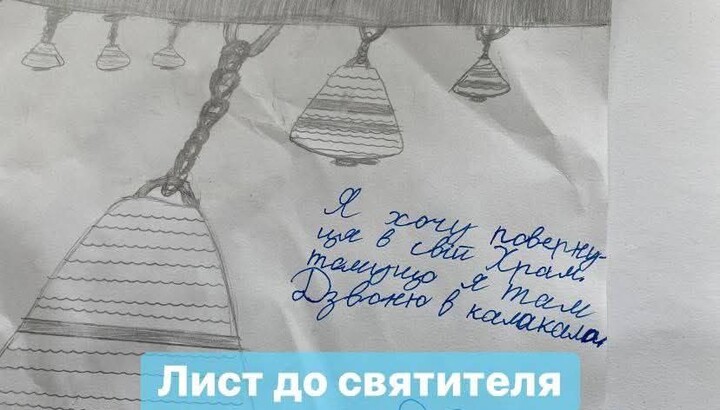 Я хочу поверну-
ця в свій Храм.
томущо я там
Дзвоню в калакала.
Лист до святителя